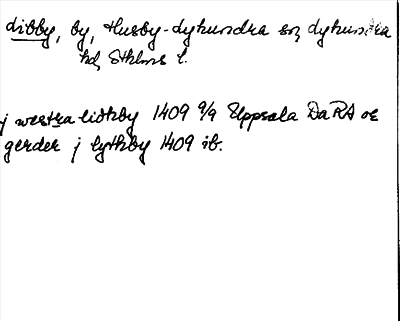 Libby, by, Husby-Lyhundra sn, Lyhundra
hd, Sthlms l.
j westra lidhby 1409 9/9 Uppsala Da RA oc
gerder j lythby 1409 ib.